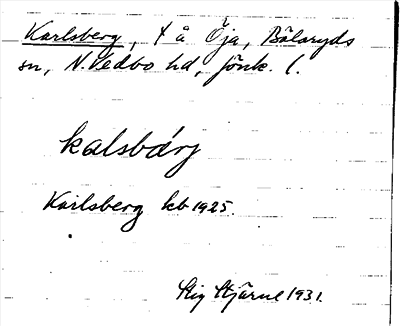 Karlsberg, t å Öja, Bälaryds
sn, N. Vedbo hd, Jönk. l.
kalsbárj
Karlsberg kb 1925.
Stig Stjärne 1931.